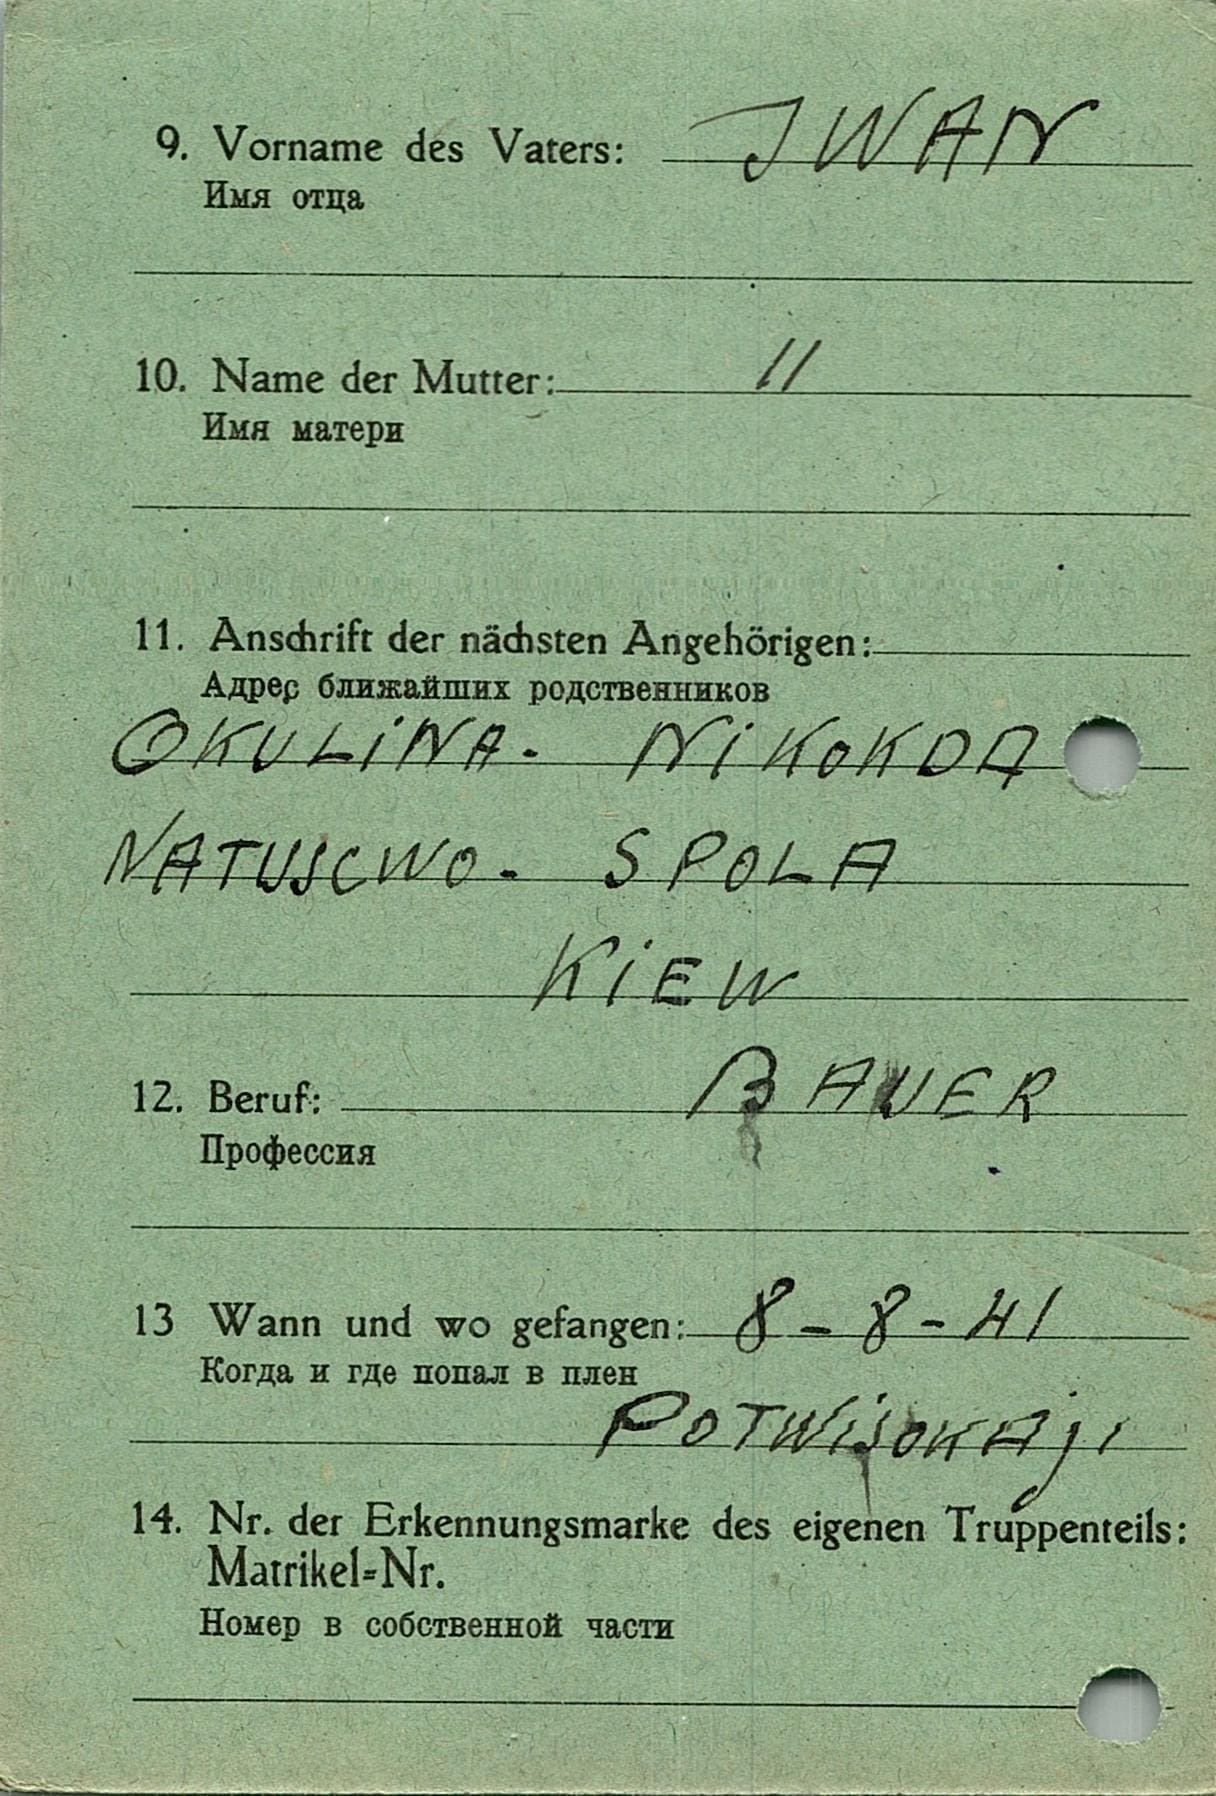 9. Vorname des Vaters: IWAN
Имя отца
10. Name der Mutter: //
Имя матери
11. Anschrift der nächsten Angehörigen:
Адрес ближайших родственников
OKULiNA- NiKOKDA
NATUSCWO- SPOLA
KiEW
12. Beruf: BAUER
Профессия
13 Wann und wo gefangen: 8-8-41
Когда и где попал в плен
POTWiSOKAji
14. Nr. der Erkennungsmarke des eigenen Truppenteils:
Matrikel=Nr.
Номер в собственной части